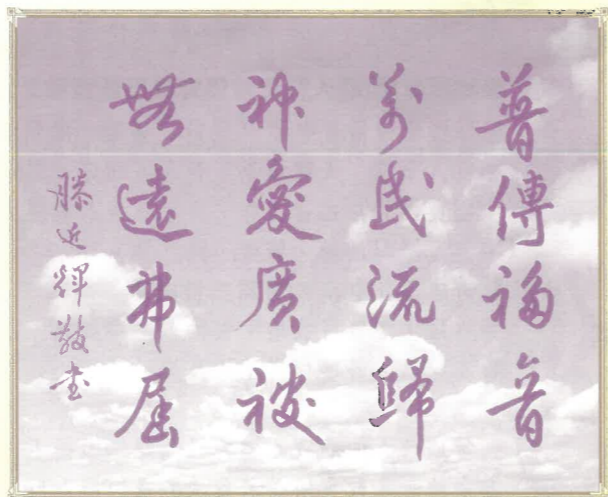 普傳福音
萬民流歸
神愛廣被
無遠弗屆
滕近輝敬書